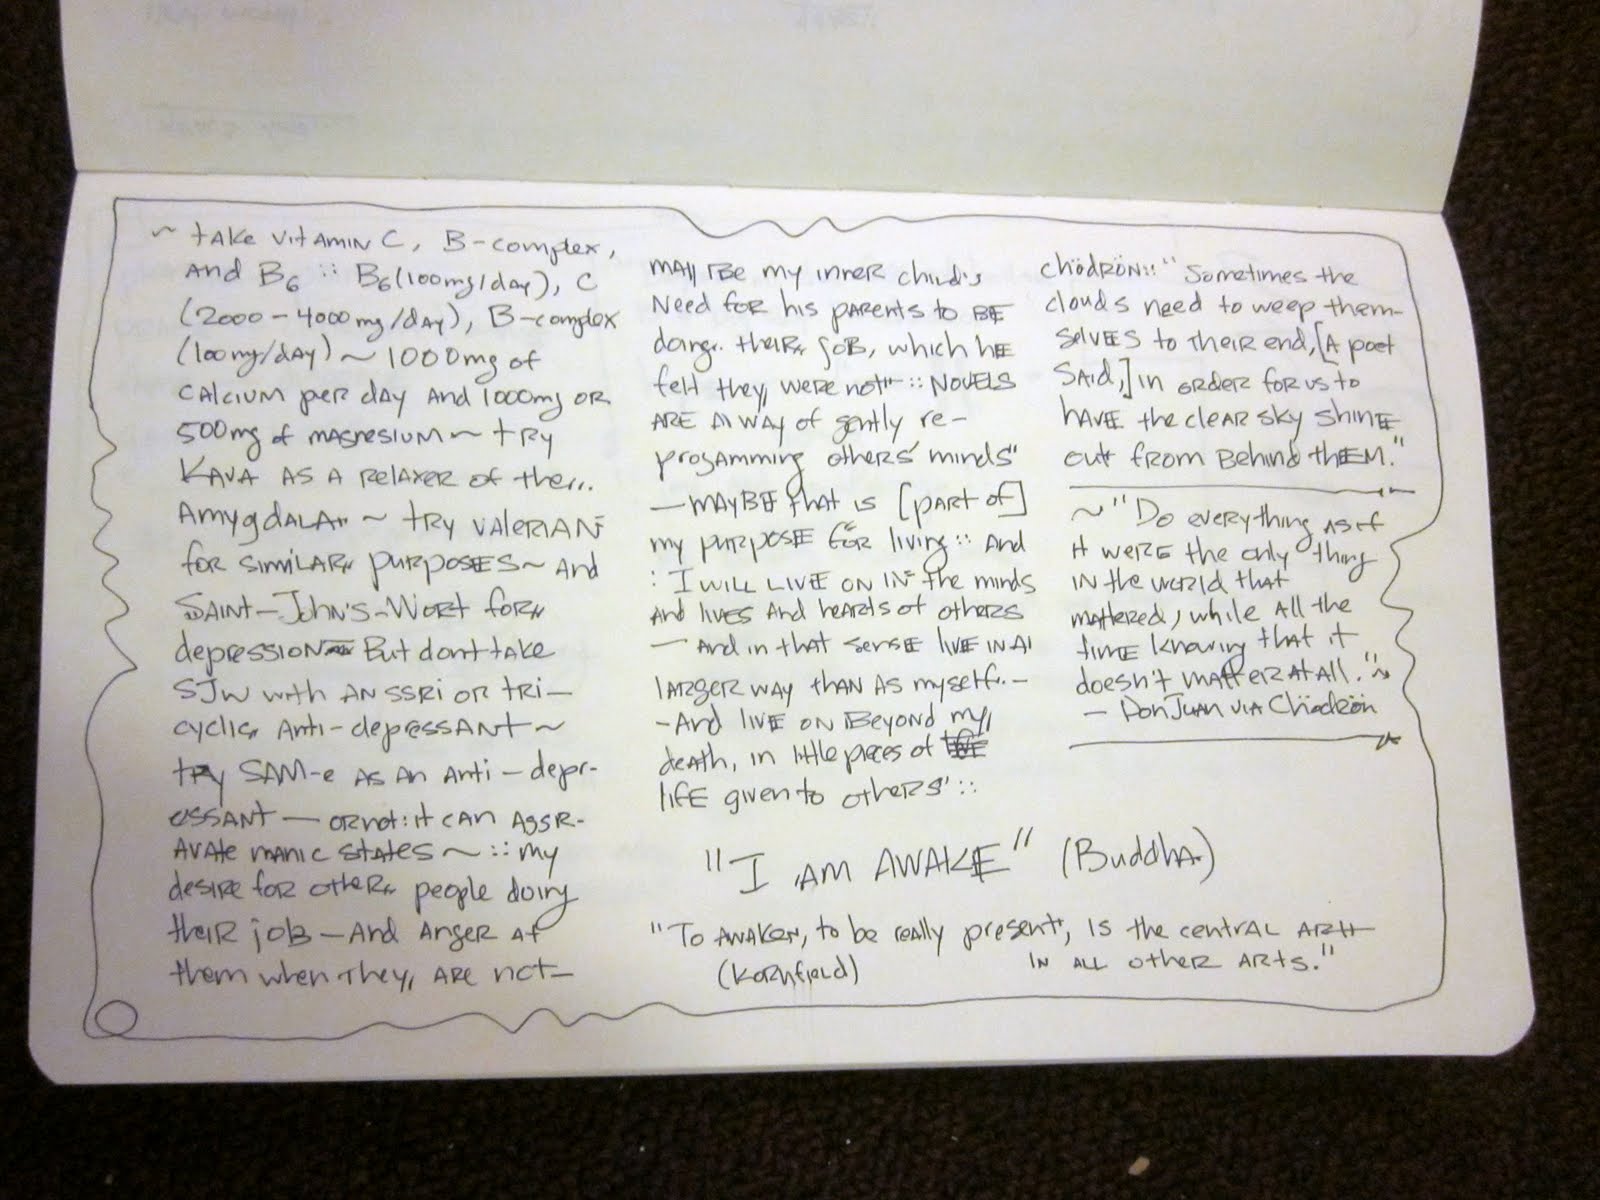 ~ take vitamin C, B-complex,
and B6 :: B6 (100mg/day), C
(2000-4000mg/day), B-complex
(100mg/day) ~ 1000mg of
calcium per day and 1000mg or
500mg of magnesium ~ try
Kava as a relaxer of the...
Amygdala ~ try valerian
for similar purposes ~ and
Saint-John's-Wort for
depression But dont take
SJW with an SSRI or tri-
cyclic anti-depressant ~
try SAM-e as an anti-depr-
essant — or not: it can aggr-
avate manic states ~ :: my
desire for other people doing
their job — and anger at
them when they are not —
may be my inner child's
need for his parents to be
doing their job, which he
felt they were not :: Novels
are a way of gently re-
progamming others' minds
— maybe that is [part of]
my purpose for living :: and
: I will live on in the minds
and lives and hearts of others
— and in that sense live in a
larger way than as myself. —
- and live on beyond my
death, in little pieces of
life given to others' ::
"I am awake" (Buddha)
"To awaken, to be really present, is the central art
in all other arts."
(Kornfield)
Chödrön :: "Sometimes the
clouds need to weep them-
selves to their end, [a poet
said,] in order for us to
have the clear sky shine
out from behind them."
~ "Do everything as if
it were the only thing
in the world that
mattered, while all the
time knowing that it
doesn't matter at all." ~
— Don Juan via Chödrön